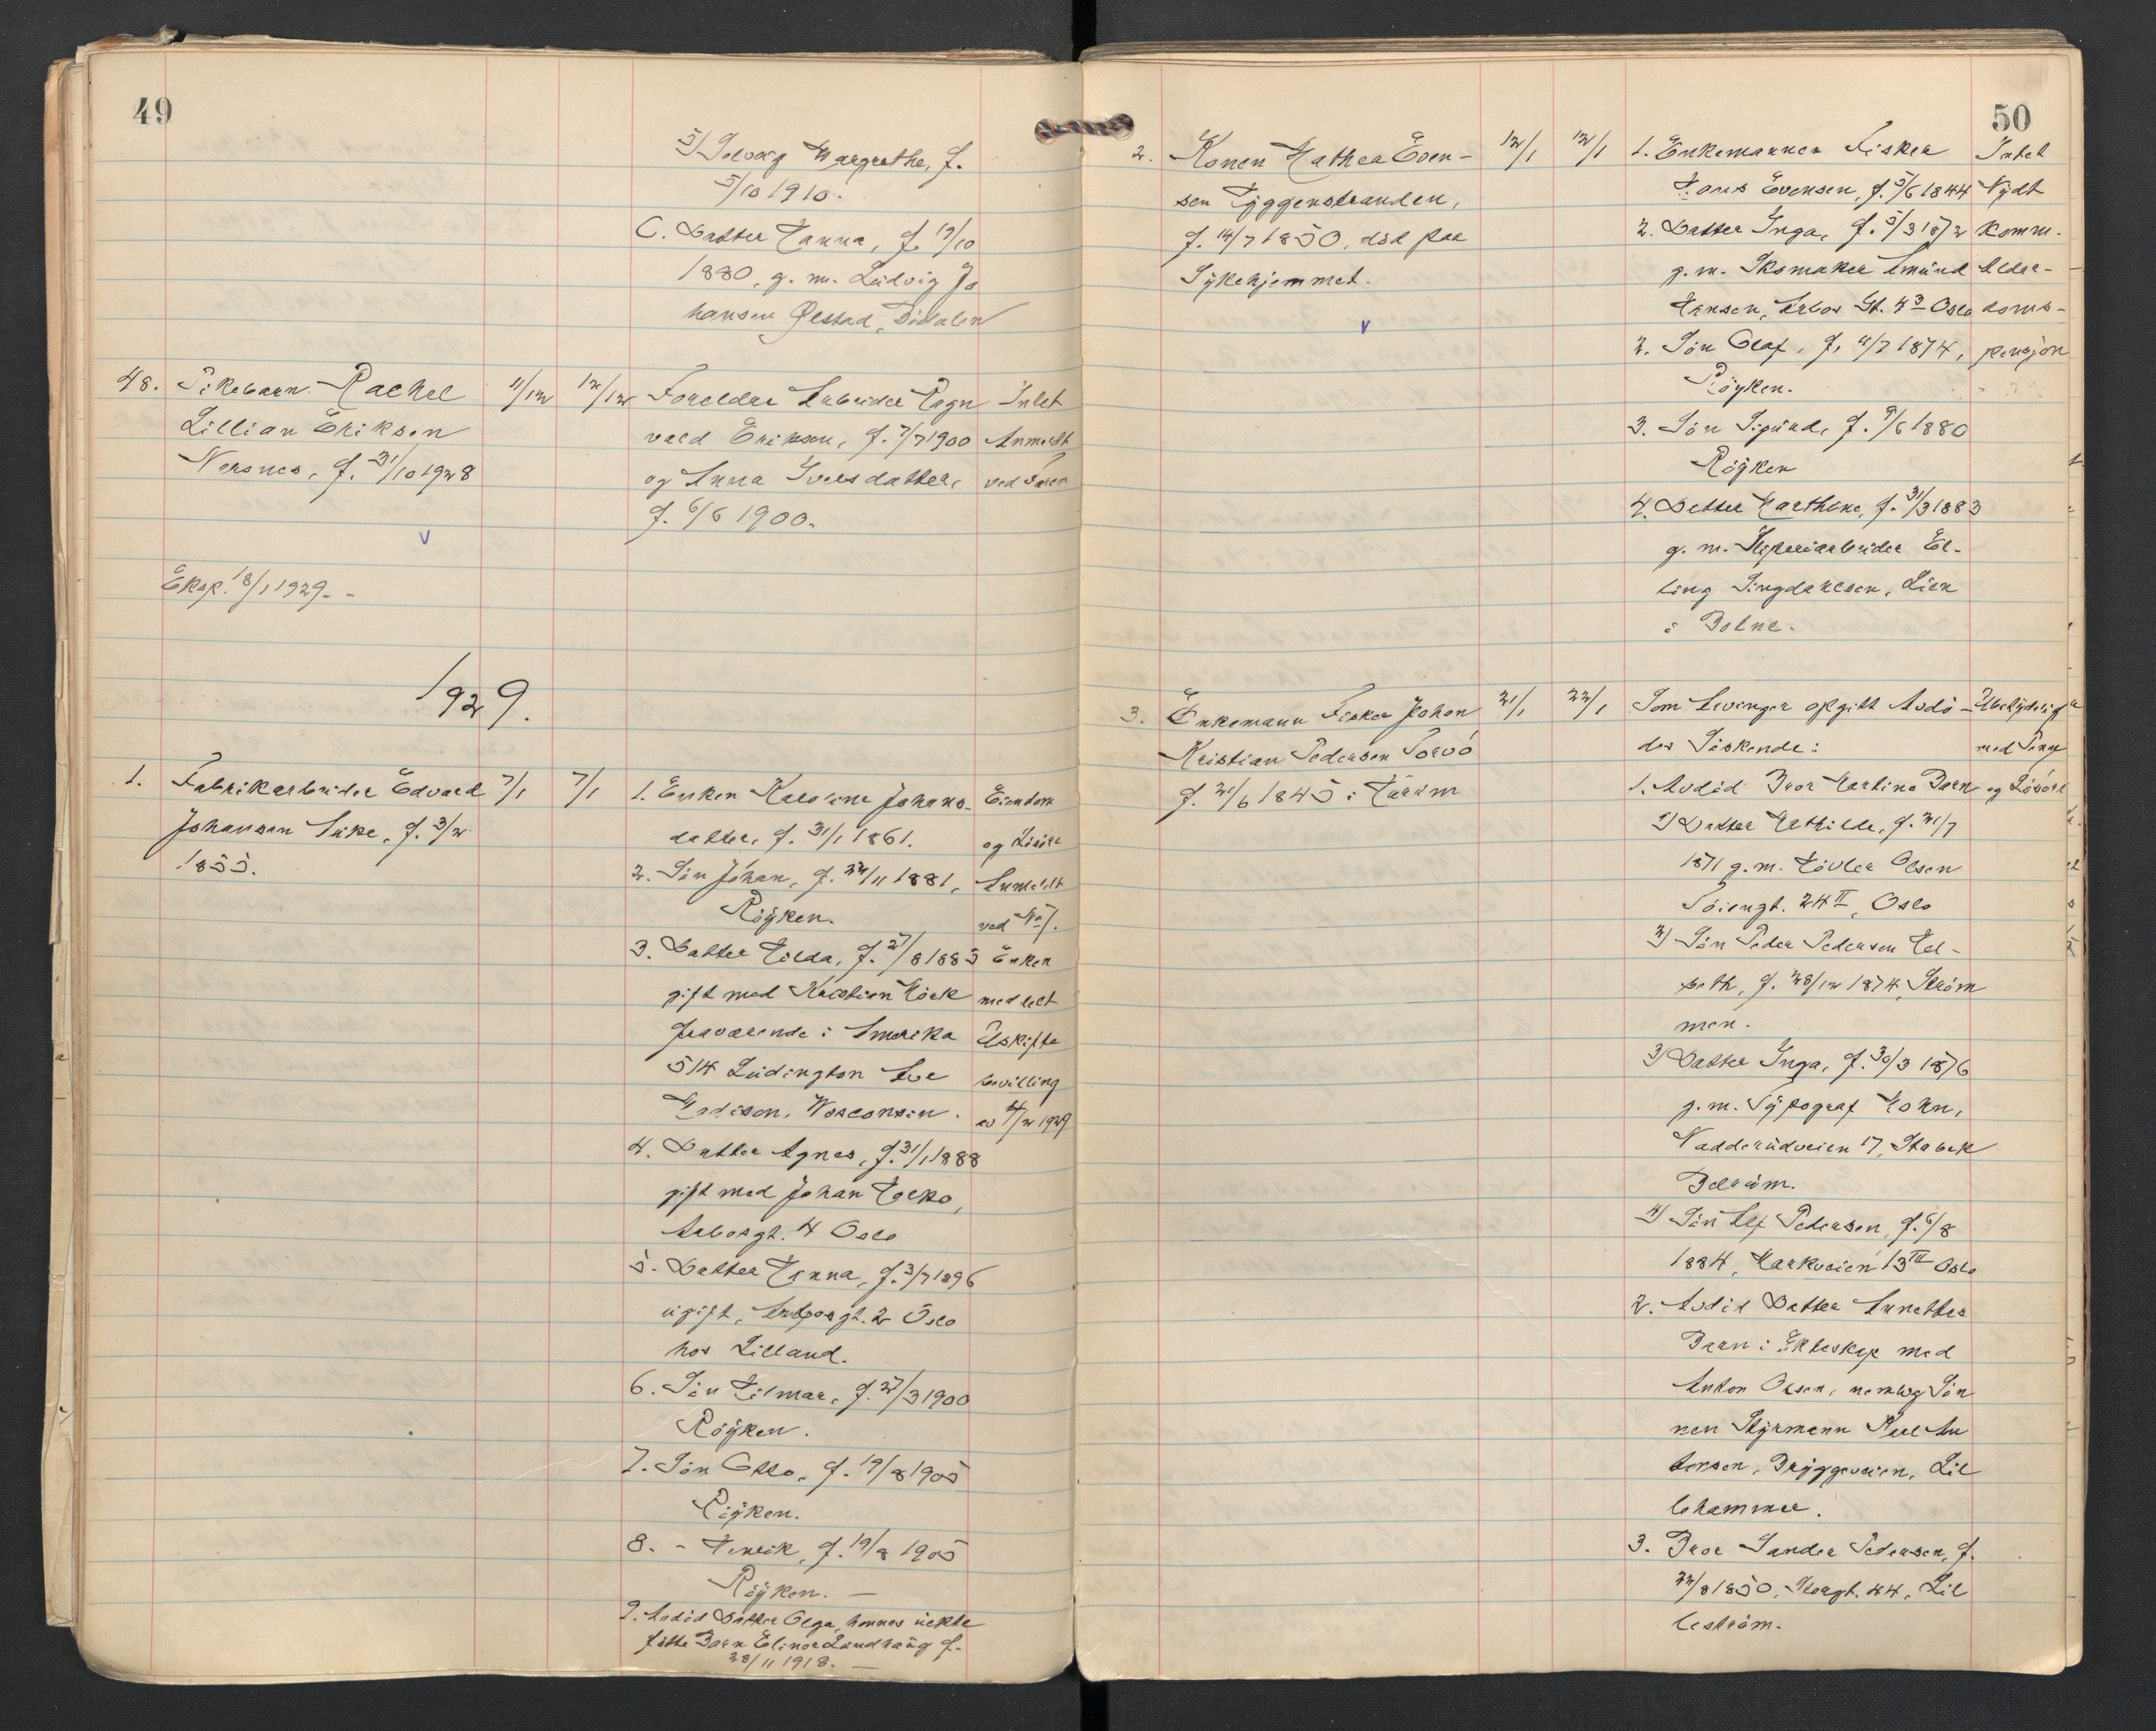 49
5) Solvorg Margrethe, f.
5/10 1910.
C. Datter Hanna, f. 19/10
1880, g. m. Ludvig Jo
hansen Ølstad, Bödalen
48. Pikebarn Rachel
Lillian Eriksen
Nersnes, f. 31/10 1928
11/12 12/12
Foreldre Arbeider Ragn
vald Eriksen, f. 7/7 1900
og Anna Iversdatter,
f. 6/6 1900.
Intet
Anmeldt
ved Faren
Eksp. 18/1 1929. -
1929.
1. Fabrikarbeider Edvard
Johansen Åkre, f. 3/2
1855.
7/1 7/1
1. Enken Karoline Johans-
datter, f. 31/1 1861.
2. Sön Johan, f. 22/11 1881,
Röyken.
3. Datter Hilda, f. 27/8 1883
gift med Kristian Hörk
fraværende i Amerika
514 Ludington Ave
Madison, Wisconsin.
4. Datter Agnes, f. 31/1 1888
gift med Johan
Arbosgt. 4 Oslo
5. Datter Hanna, f. 3/7 1896
ugift, Arbosgt. 2 Oslo
hos Lilland.
6. Sön Hilmar, f. 27/3 1900
Röyken.
7. Sön Otto, f. 19/8 1905
Röyken.
8. - Henrik, f. 19/8 1905
Röyken. -
9. Avdöd Datter Olga, hennes uekte
födte Barn Elinor Lundhaug f.
28/11 1918. -
Eiendom
og Lösöre
Anmeldt
ved
Enken
meddelt
Uskifte
bevilling
av 4/2 1929
50
2. Konen Mathea Even-
sen Hyggenstranden,
f. 14/7 1850, död paa
Sykehjemmet.
12/1 12/1
1. Enkemannen Fisker
Hans Evensen, f. 5/6 1844
2. Datter Inga, f. 5/3 1872
g. m. Skomaker Amund
Hansen, Arbos Gt. 4 3 Oslo
2. Sön Olaf, f. 4/7 1874,
Röyken.
3. Sön Sigurd, f. 9/6 1880
Röyken
4. Datter Marthine, f. 31/3 1883
g. m. Sliperiarbeider El-
ling Singdahlsen, Lien
i Botne.
Intet
Nydt
Komm.
Alder-
doms-
pensjon
3. Enkemann Fisker Johan
Kristian Pedersen Torvö
f. 21/6 1845 i Hurum
21/1 22/1
Som Arvinger opgitt Avdö-
des Söskende:
1. Avdöd Bror Martins Barn
1) Datter Mathilde, f. 21/7
1871 g. m. Hövler Olsen
Töiengt. 24 II, Oslo
2) Sön Peder Pedersen Hel-
seth, f. 28/12 1874, Ström
men.
3) Datter Inga, f. 30/3 1876
g. m. Typograf Hohn,
Nadderudveien 17, Stabek
Bærum.
4) Sön Alf Pedersen, f. 6/8
1884, Markveien 13 III Oslo
2. Avdöd Datter Anettes
Barn i Ekteskap med
Anton Olsen, nemlig Sön
nen Styrmann Karl An
tonsen, Bryggeveien, Lil
lehammer.
3. Bror Sander Pedersen, f.
22/8 1850, Storgt. 44, Lil
leström.
Ubetydelig
med Penge
og Lösöre